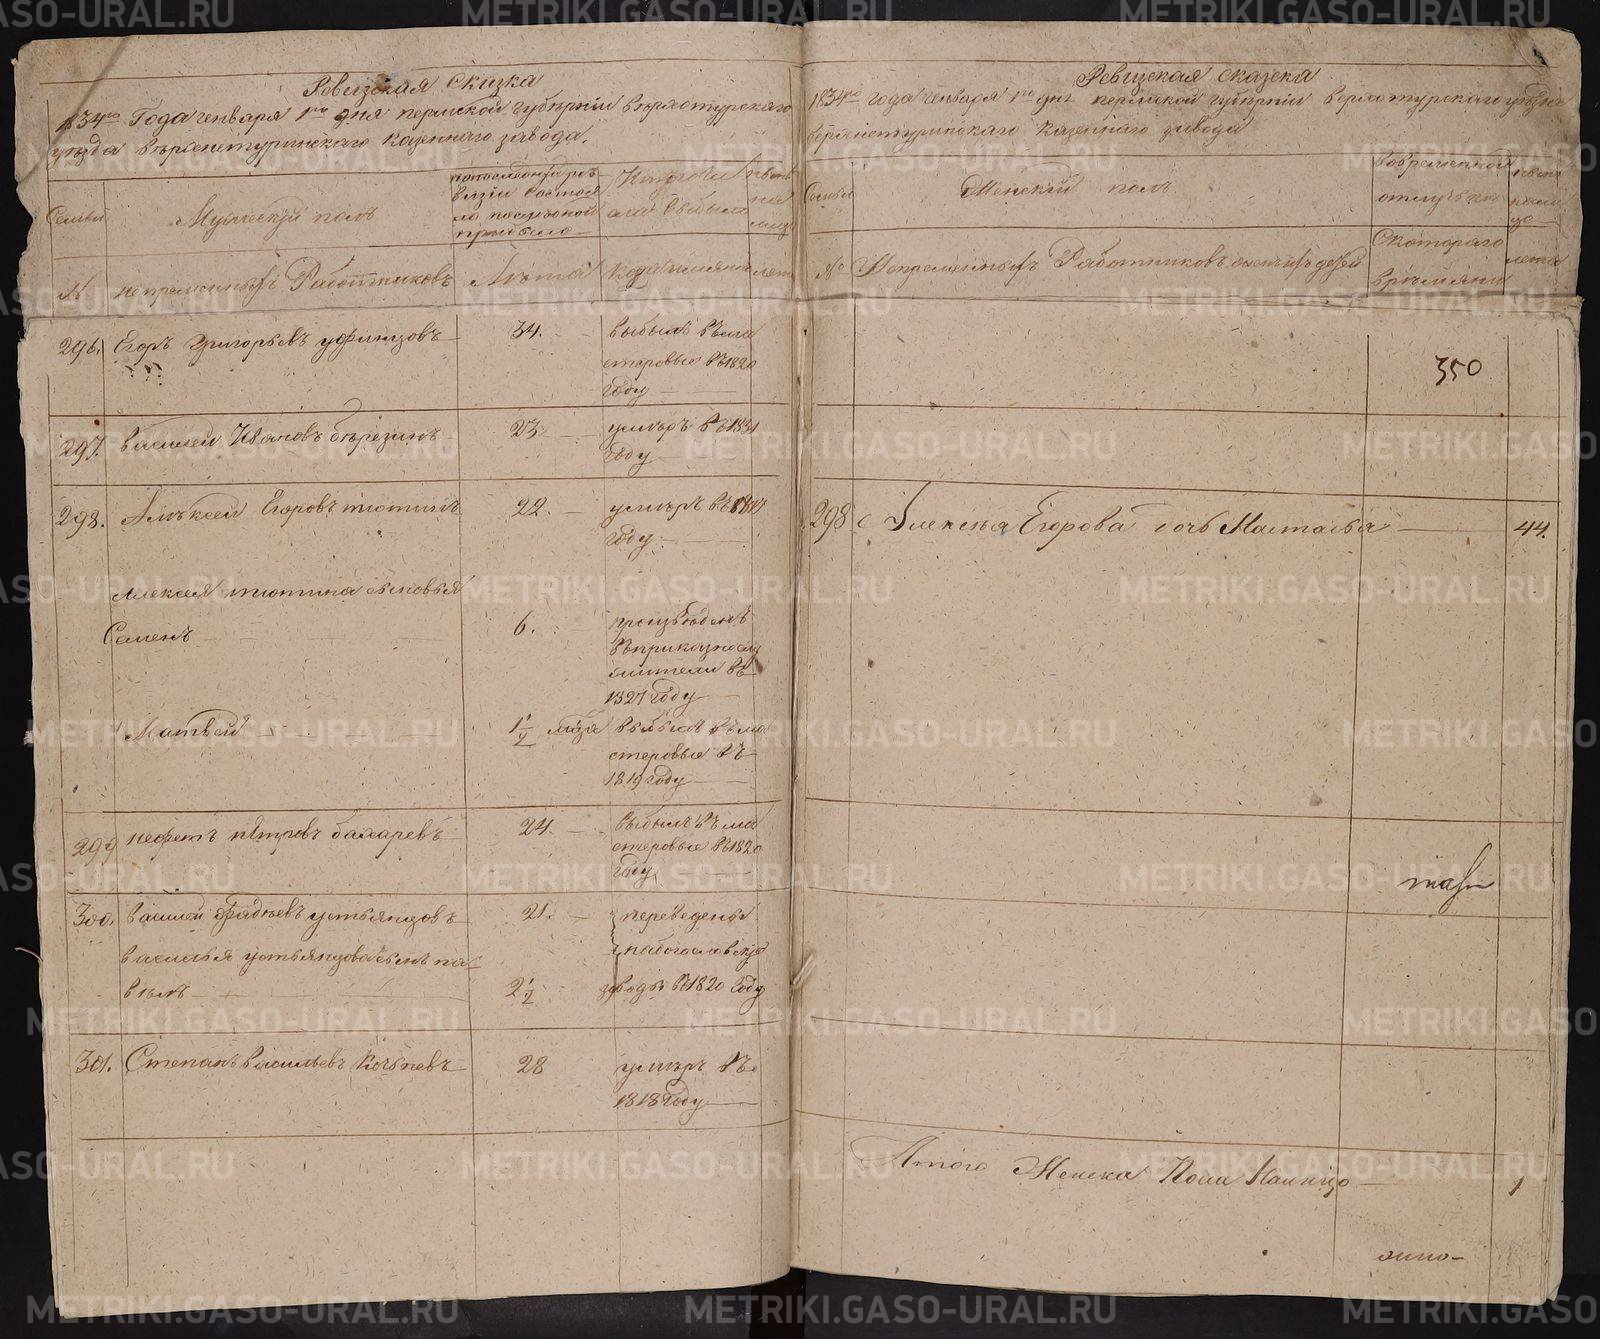 Ревизская Сказка
1834го Года генваря 1го дня пермской губернiи верхотурскаго
уезда верхнетуринскаго казеннаго завода.
Семьи
Мужеской полъ
по последней ре-
визiи состоя
ло и после оной
прибыло
Изтого числа
выбыло
ныне
на
лицо
№
непременныхъ Работниковъ
Лета
когда именно
лета
296. Егоръ Григорьевъ уфинцовъ
34.
выбылъ въ ма
стеровые въ 1820
году
297. василей Ивановъ березинъ
23.
умеръ въ 1831
году
298. Алексей Егоровъ тютинъ
22.
умеръ въ
году
Алексея тютина сыновья
Семенъ
6.
произведенъ
въ приказнослу
жители въ
1827 году
Матвей
1 1/2 года
выбылъ въ ма
стеровые въ
1819 году
299 нефетъ петровъ баларевъ
24.
выбылъ въ ма
стеровые въ 1820
году
300. василей фадеевъ устьянцовъ
21.
переведены
василья устьянцова сынъ па-
на богословскую
велъ
2 1/2
заводъ въ 1820 году
301. Степанъ васильевъ
28
умеръ въ
1818 году
Ревизская сказска
1834го года генваря 1го дня пермской губернiи верхотурскаго уезда
верхнетуринскаго казеннаго завода
Семьи
Женскiй полъ
во временной
отлучке
ныне
на ли
цо
№
Непременныхъ Работниковъ жен ихъ детей
Скотораго
времяни
лета
350
298
Алексея Егорова дочь Настасья
44.
Итого Женска Пола Налицо
1